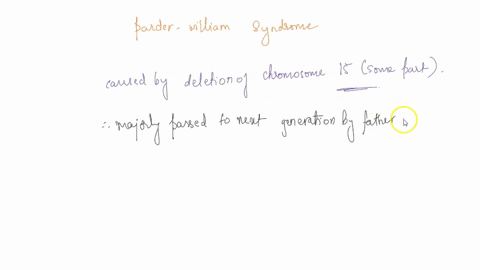 parder-william Syndrome
caused by deletion of chromosome 15 (some part).
∴ majorly passed to next generation by father